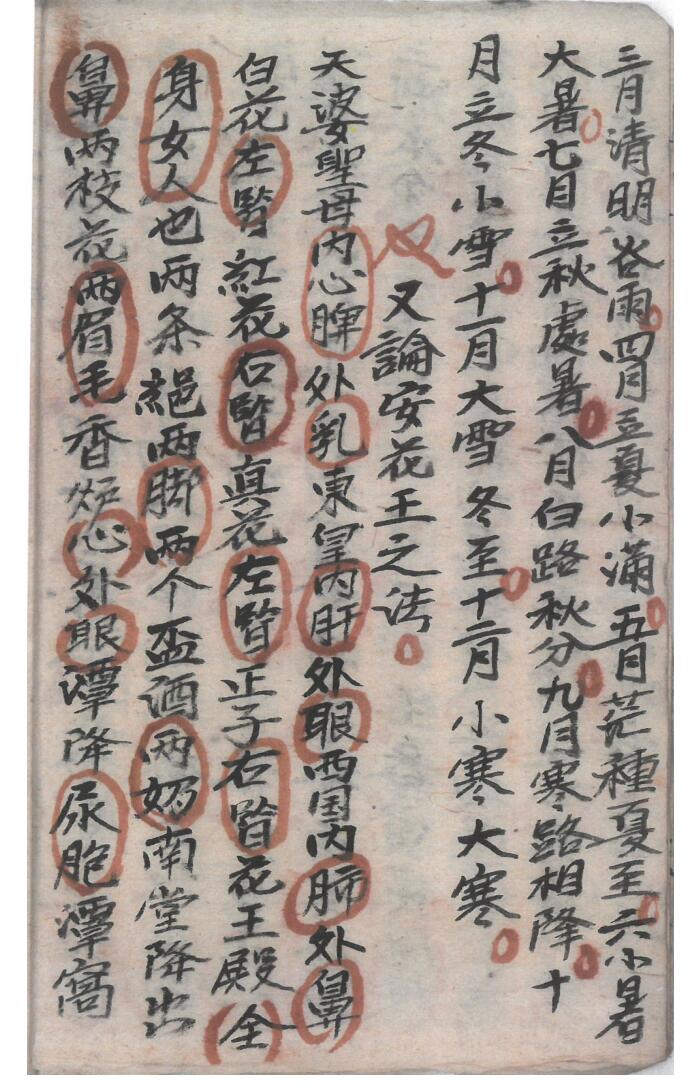 三月清明谷雨四月立夏小满五月芒種夏至六小暑
大暑七月立秋處暑八月白路秋分九月寒路相降十
月立冬小雪十一月大雪冬至十二月小寒大寒
又論安花王之法
天婆聖母内心脾外乳東皇内肝外眼西国内肺外鼻
白花左腎紅花右腎真花左腎正子右腎花王殿全
身女人也两条縄两脚两个盃酒两奶南堂降出
鼻两枝花两眉毛香炉心外眼潭降尿胞潭窩